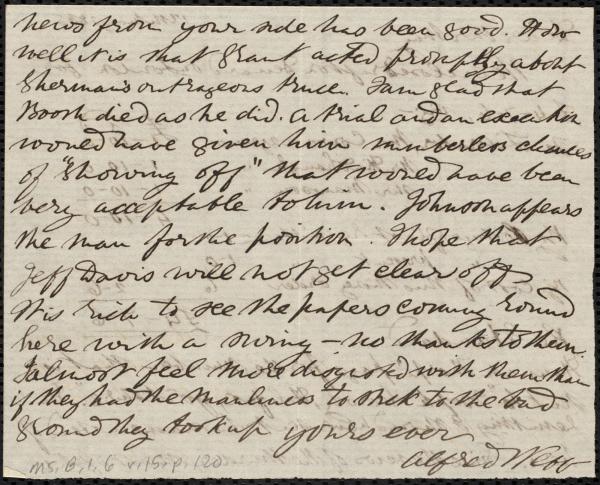 news from your side has been good. How
well it is that Grant acted promptly about
Sherman's outrageous truce. I am glad that
Booth died as he did. a trial and an execution
would have given him numberless chances
of "showing off" that would have been
very acceptable to him. Johnson appears
the man for the position. I hope that
Jeff Davis will not get clear off
It is rich to see the papers coming round
here with a swing — no thanks to them.
I almost feel more disgusted with them than
if they had the manliness to stick to the bad
ground they took up yours ever
Alfred Webb
Ms. B. 1. 6 v. 15, p. 120